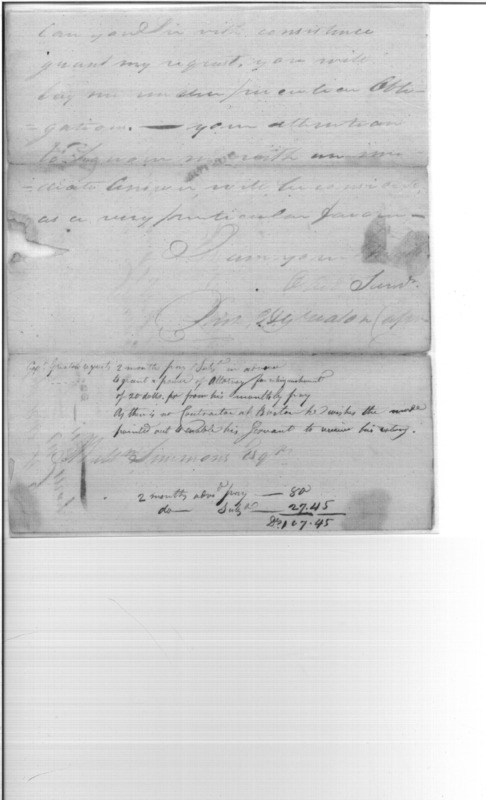 Can you Sir with consistence
grant my request, you will
lay me under particular Obli-
-gation. — your attention
to favour me with an im-
-diate Answer will be considered
as a very particular favour —
I am your
Obt Servt.
Capn
Capt. requests 2 months pay & Subs. in advance
to grant a power of Attorney for relinquishment
of 20 dolls. per from his monthly pay
As there is no Contractor at Boston he wishes the mode
pointed out to enable his Servant to receive his rations.
Simmons Esqr.
2 months advd. pay — 80
do — Subs. — 27.45
Ds 107.45